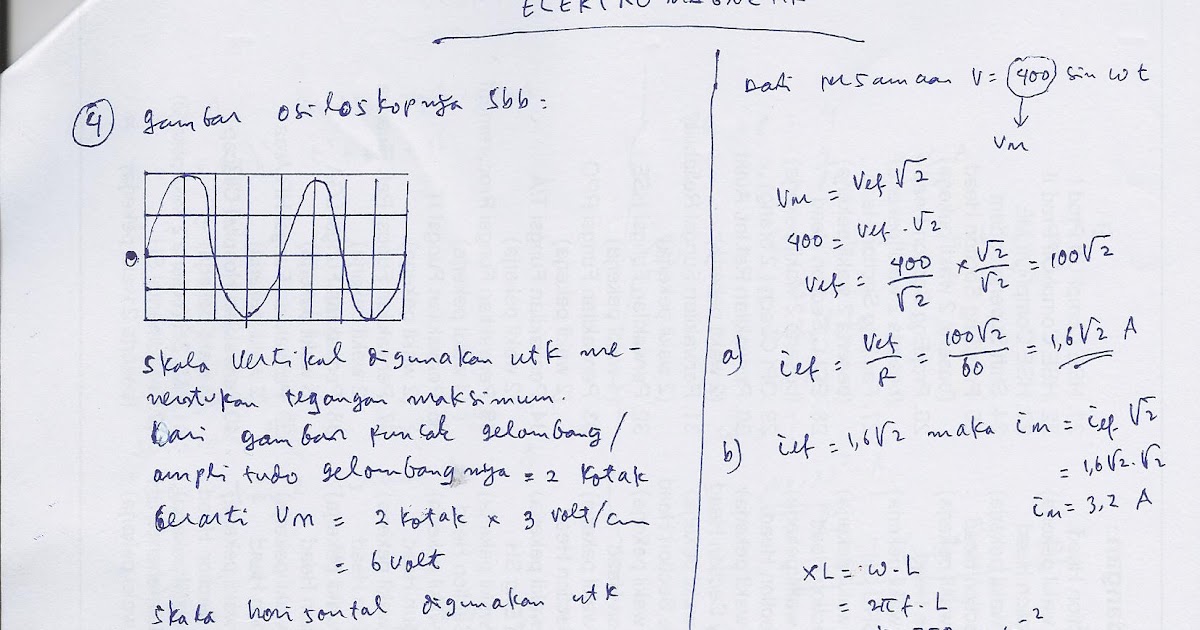 ELEKTRO MAGNETIK
4 Gambar osiloskopnya sbb :
Skala vertikal digunakan utk me-
nentukan tegangan maksimum.
Dari gambar puncak gelombang/
amplitudo gelombangnya = 2 kotak
berarti Vm = 2 kotak × 3 volt/cm
= 6 volt
Skala horisontal digunakan utk
Dari persamaan V = 400 sin ωt
Vm
Vm = Vef √2
400 = Vef . √2
Vef = 400/√2 × √2/√2 = 100√2
a) ief = Vef/R = 100√2/60 = 1,6√2 A
b) ief = 1,6√2 maka im = ief √2
= 1,6√2.√2
im = 3,2 A
XL = ω . L
= 2πf . L